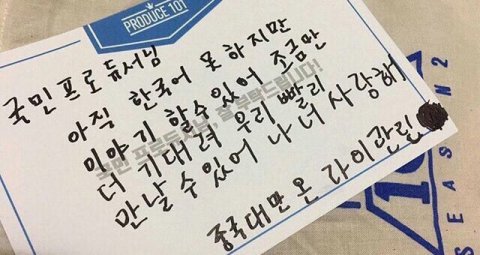 PRODUCE 101
국민 프로듀서님
아직 한국어 못 하지만
이야기 할수있어 조금만
더 기대려 우리 빨리
만날 수있어 나 너 사랑해
중국대만 온 라이관린
국민 프로듀서님, 잘 부탁드립니다!
SEASON2